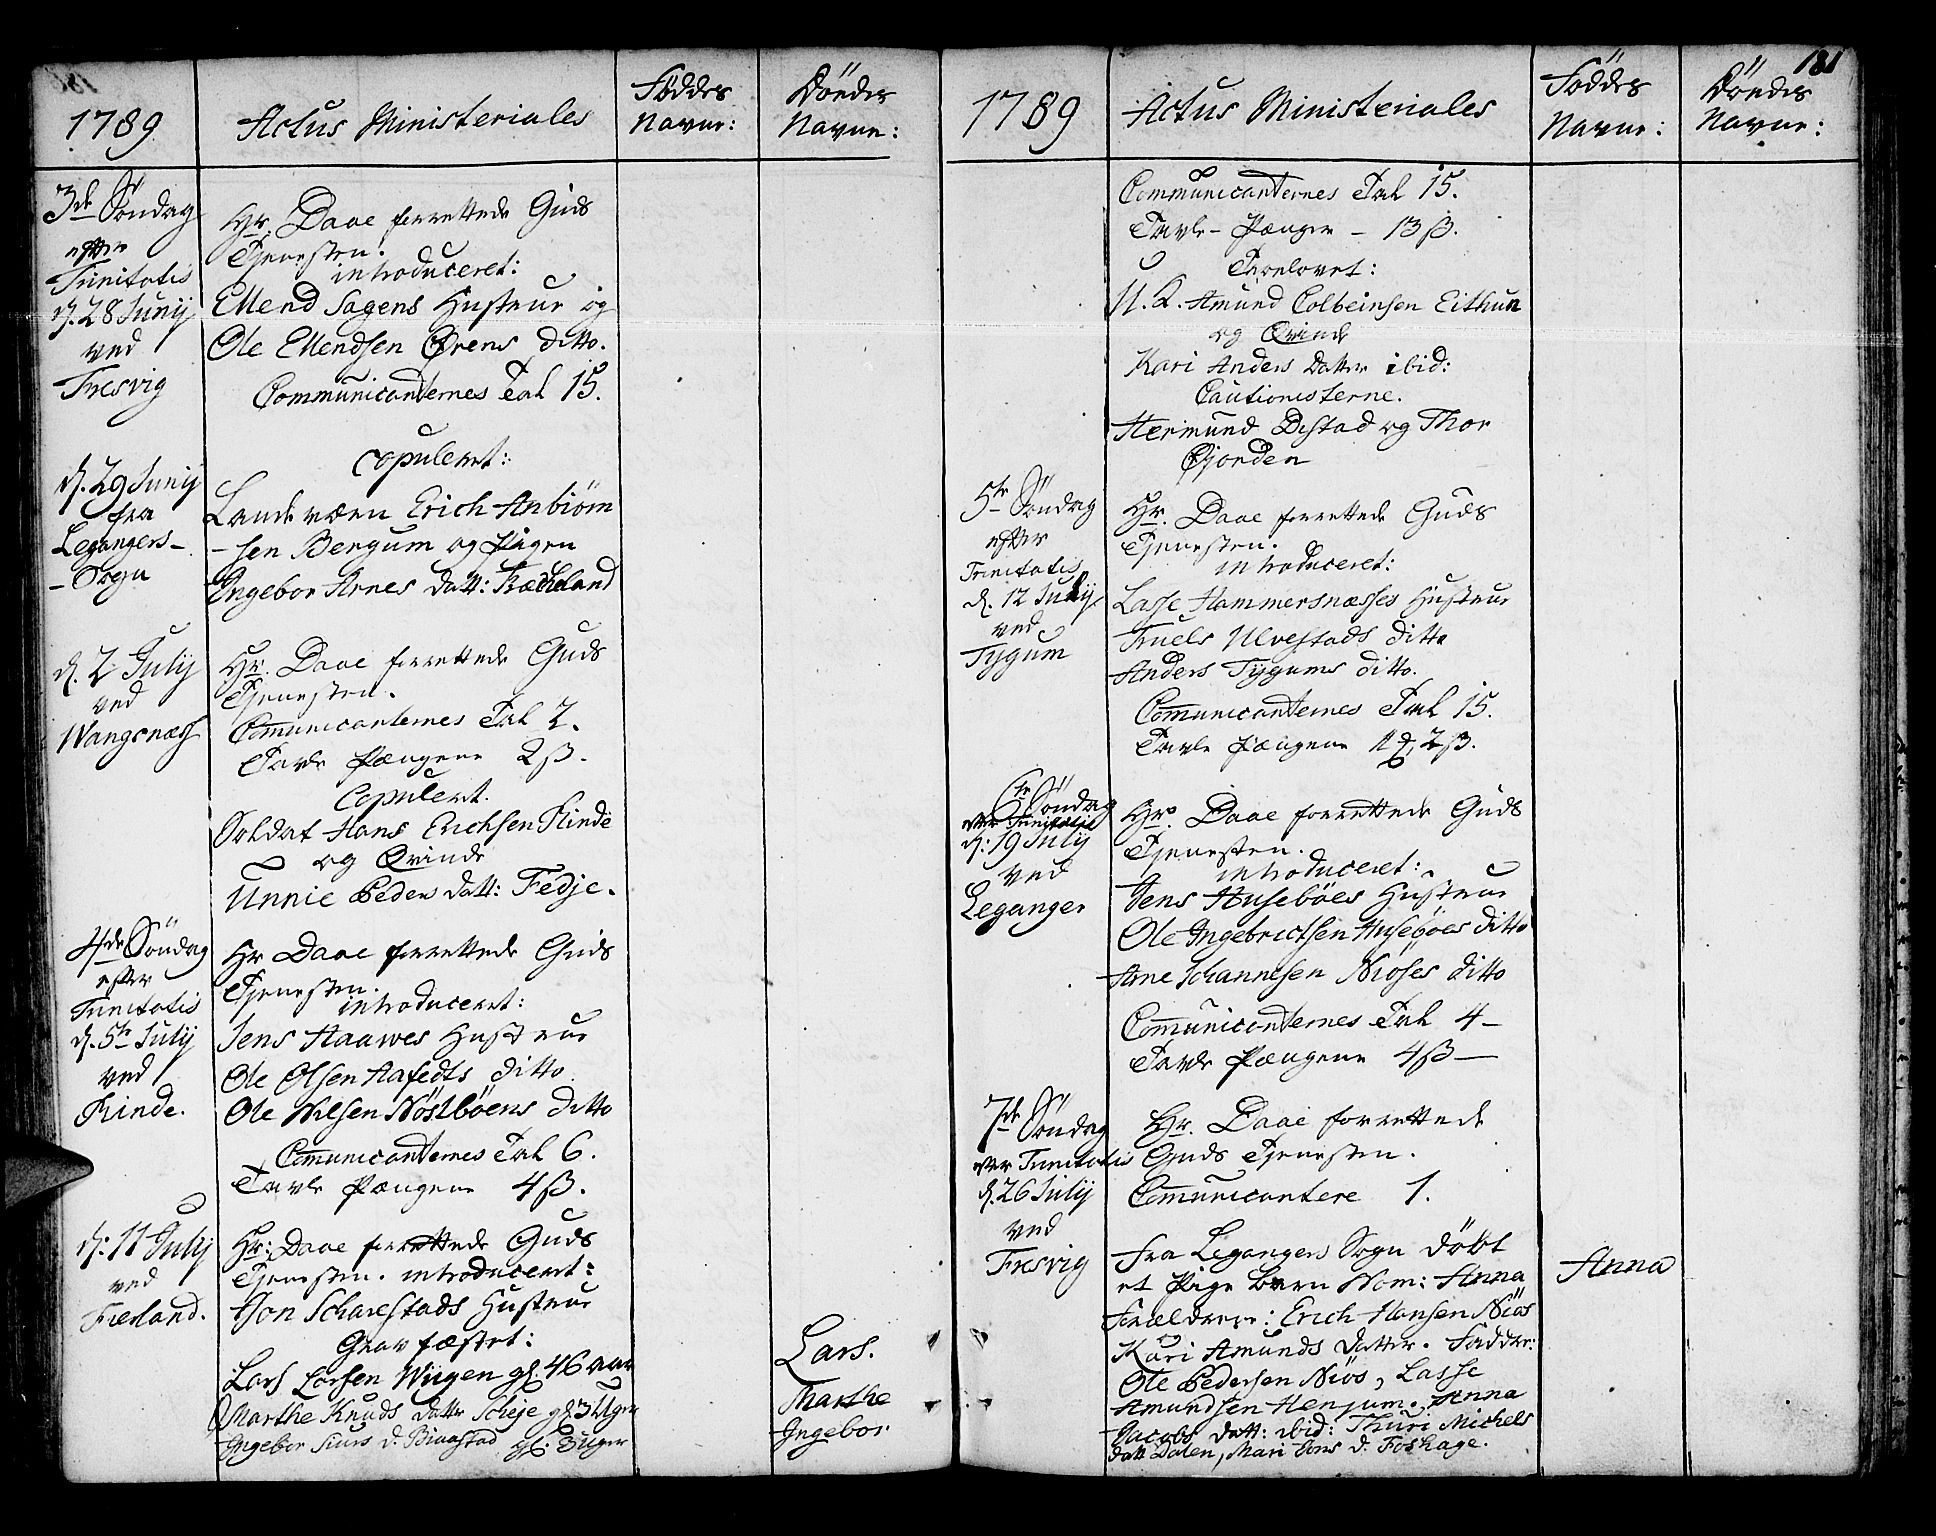 1789
Actus Ministeriales
Föddes
Navne:
Döndes
Navne:
3de Söndag
efter
Trinitatis
d. 28 Junij
ved
Fresvig
Hr. Daae forrettede Guds
Tjenesten.
introduceret:
Ellend Sagens Hustrue og
Ole Ellendsen Ørens ditto.
Communicanternes Tal 15.
d. 29 Junij
fra
Legangers-
-Sogn
copuleret:
Landeværn Erich Anbiörn
-sen Bergum og Pigen
Ingebor Arnes datt:
d. 2 Julij
ved
Wangsnæss
Hr. Daae forrettede Guds
Tjenesten.
Comunicanternes Tal 2.
Tavle Pængene 2 ß.
Copuleret.
Soldat Hans Erichsen Rinde
og Qvinde
Unnie Peders datt: Fedje.
4de Söndag
efter
Trinitatis
d. 5te Julij
ved
Rinde.
Hr Daae forrettede Guds
Tjenesten.
introduceret:
Jens Haawes Hustrue
Ole Olsen Aafedts ditto
Ole Nilsen Nöstböens ditto
Comunicanternes Tal 6.
Tavle Pængene 4 ß.
d: 11 Julij
ved
Fierland.
Hr: Daae forrettede Guds
Tjenesten. introduceret:
Jon Scharestads Hustrue
Grav fæstet:
Lars Larsen Wiigen gl. 46 aar
Marthe Knuds datter gl 3 Uger
Ingebor Siurs d. gl: 3 Uger
Lars.
Marthe
Ingebor
181
1789
Actus Ministeriales
Föddes
Navne:
Döndes
Navne:
Communicanternes Tal 15.
Tavle-Pænger - 13 ß.
Troelovet:
U. K. Amund Colbeinsen Eithun
og Qvinde
Kari Anders Datter ibid:
Cautionisterne.
Hermund Distad og Thor
Gjorden
5te Söndag
efter
Trinitatis
d. 12 Julij
ved
Tygum
Hr. Daae forrettede Guds
Tjenesten.
introduceret:
Lasse Hammersnæsses Hustrue
Truels Ulvestads ditto
Anders Tygums ditto.
Comunicanternes Tal 15.
Tavle Pængene 1 2 ß.
6te Söndag
efter Trinitatis
d: 19 Julij
ved
Leganger
Hr. Daae forrettede Guds
Tjenesten.
introduceret:
Jens Huseböes Hustrue
Ole Ingebrictsen Huseböes ditto
Arne Johannesen Niöses ditto
Comunicanternes Tal 4-
Tavle Pængene 4 ß-
7de Söndag
efter Trinitatis
d. 26 Julij
ved
Fresvig
Hr. Daae forrettede
Guds Tjenesten.
Comunicantere 1.
fra Legangers Sogn döbt
et Pige barn Nom: Anna
Forældrene: Erich Hansen Niös
Kari Amunds datter. Fadder:
Ole Pedersen Niös, Lasse
Amundsen Henjum. Anna
Jacobs datt: ibid: Thuri Michels
datt Dalen, Mari Jons d. Foshage.
Anna